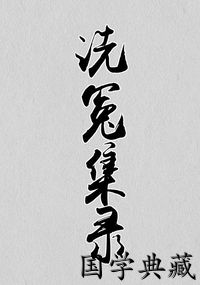 洗冤集录
国学典藏